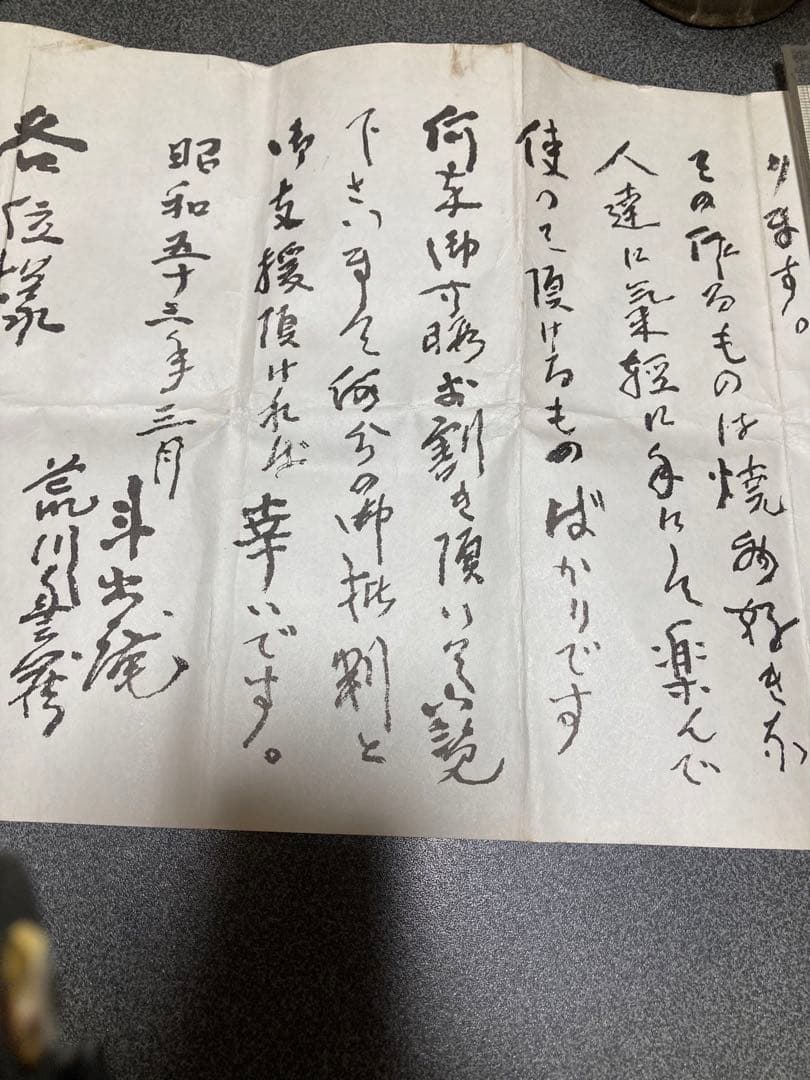 ります。
その作るものは焼物好きな
人達に氣軽に手にして楽んで
使って頂けるものばかりです
何卒御寸暇お割き頂いて御高覧
下さいまして何分の御批判と
御支援頂ければ幸いです。
昭和五十三年三月
斗出庵
荒川豊蔵
各位様